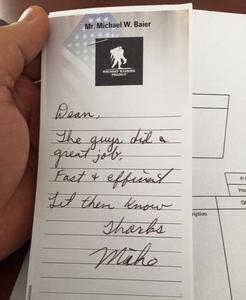 Mr. Michael W. Baier
WOUNDED WARRIOR
PROJECT
Dean,
The guys did a
great job.
Fast & efficient
Let them know
Thanks